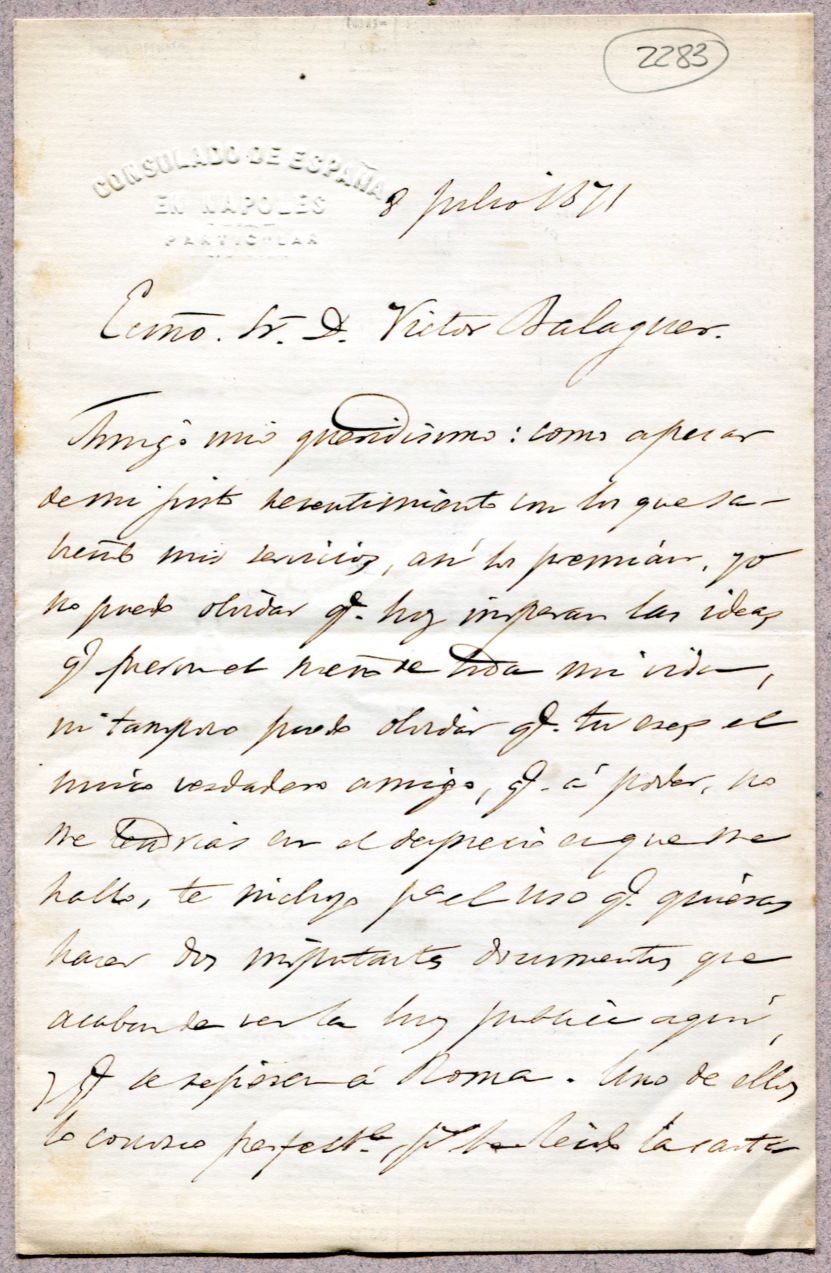 2283
CONSULADO DE ESPAÑA
EN NAPOLES
PARTICULAR
8 Julio 1871
Ecmo. Sr. D. Victor Balaguer.
Amigo mio queridisimo: como apesar
de mi justo resentimiento con los que sa-
biendo mis servicios, así los premian, yo
no puedo olvidar qe. hoy imperan las ideas
qe fueron el sueño de toda mi vida,
ni tampoco puedo olvidar qe. tu eres el
unico verdadero amigo, qe. á poder, no
me tendrias en el desprecio en que me
hallo, te incluyo pa el uso qe. quieras
hacer dos importantes documentos que
acaban de ver la luz publica aquí,
y qe se refieren á Roma. Uno de ellos
lo conozco perfectte, leido la carta